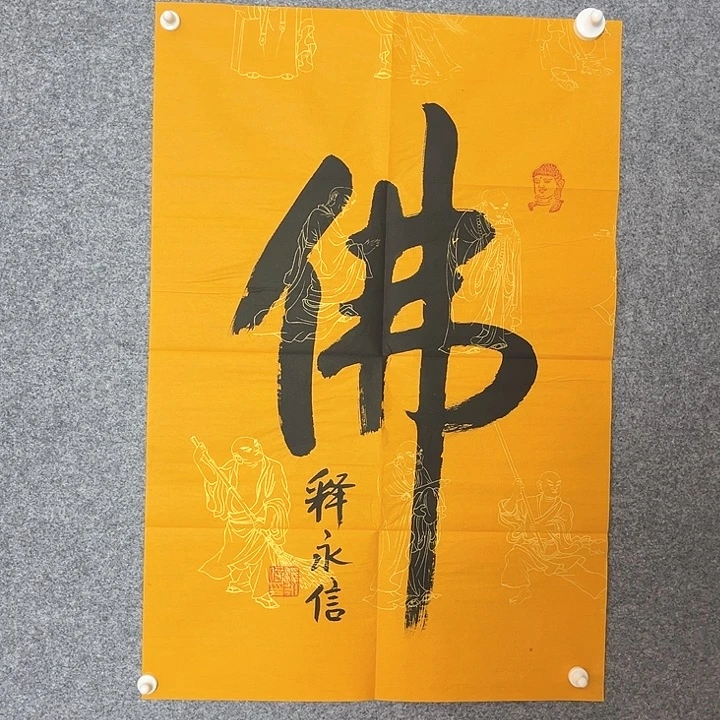 佛
释永信